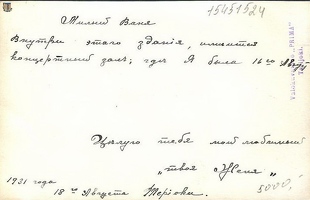 15451524
Милый Ваня
Внутри этого зданія, имеется
концертный залъ; где я была 16го Авгу
Цѣлую тебя мой любимый
„твоя Женя„
1931 года
18го Августа Терiоки.
5000,
"PRIMA"